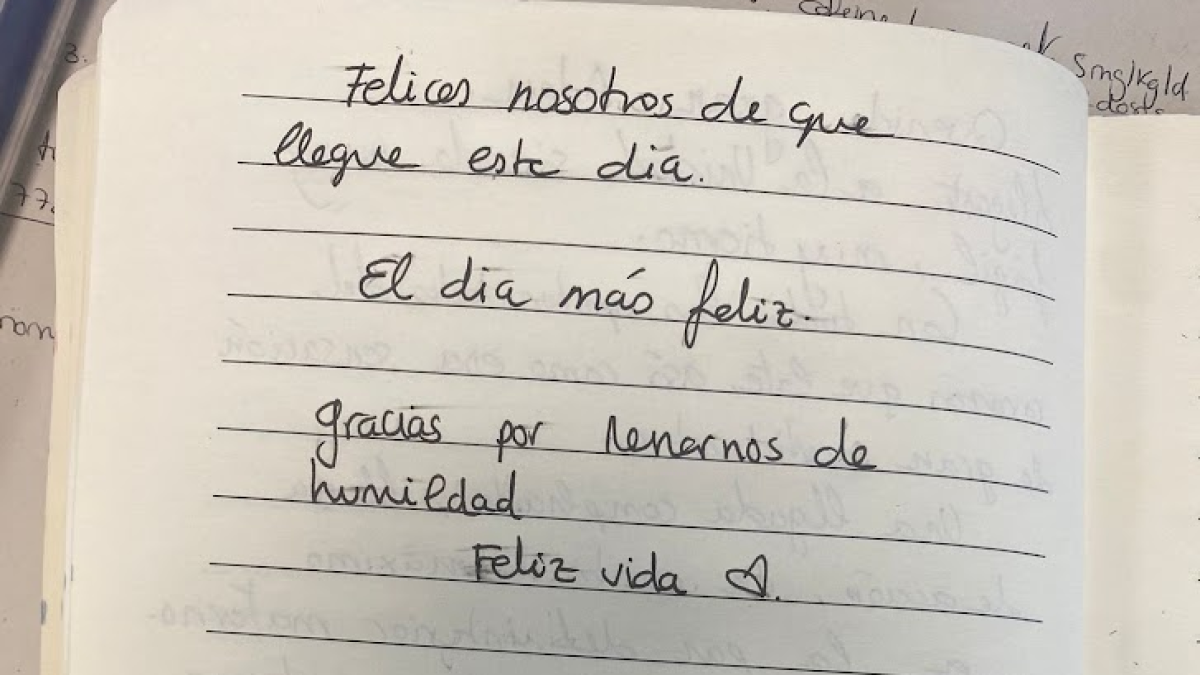 Felices nosotros de que
llegue este dia.
El dia más feliz.
gracias por llenarnos de
humildad
Feliz vida ♡.
3.
5mg/kg/d
77